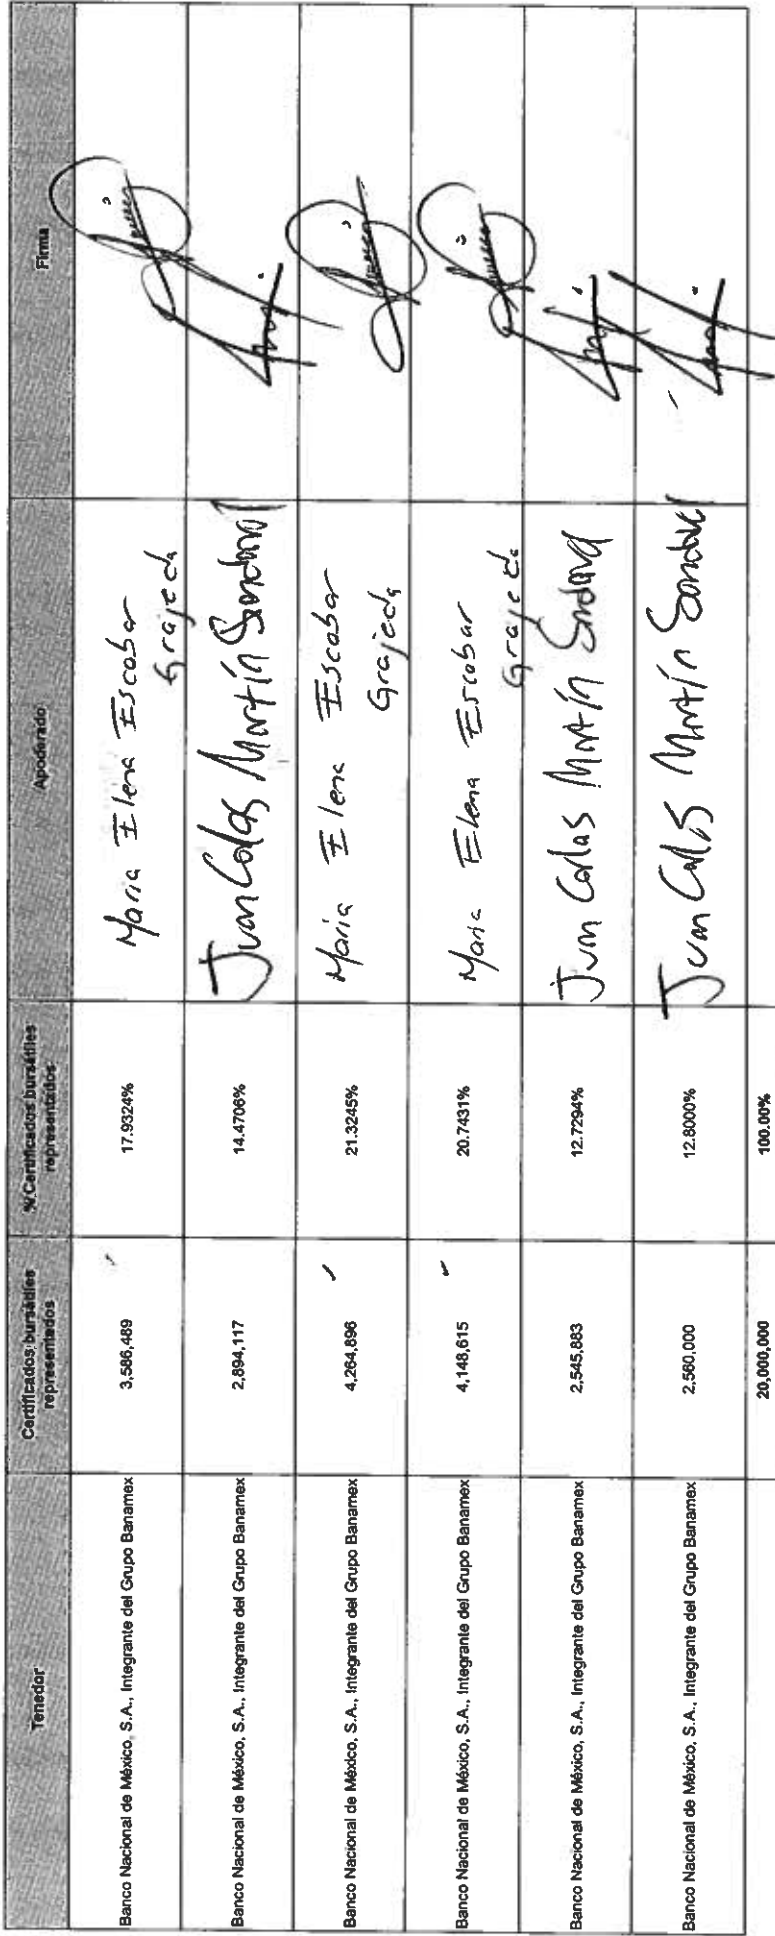 Tenedor
Certificados bursátiles
representados
% Certificados bursátiles
representados
Apoderado
Firma
Banco Nacional de México, S.A., Integrante del Grupo Banamex
3,586,489
17.9324%
Maria Elena Escobar
Grajeda
Banco Nacional de México, S.A., Integrante del Grupo Banamex
2,894,117
14.4706%
Juan Carlos Martín Sandoval
Banco Nacional de México, S.A., Integrante del Grupo Banamex
4,264,896
21.3245%
Maria Elena Escobar
Grajeda
Banco Nacional de México, S.A., Integrante del Grupo Banamex
4,148,615
20.7431%
Maria Elena Escobar
Grajeda
Banco Nacional de México, S.A., Integrante del Grupo Banamex
2,545,883
12.7294%
Juan Carlos Martín Sandoval
Banco Nacional de México, S.A., Integrante del Grupo Banamex
2,560,000
12.8000%
Juan Carlos Martín Sandoval
20,000,000
100.00%